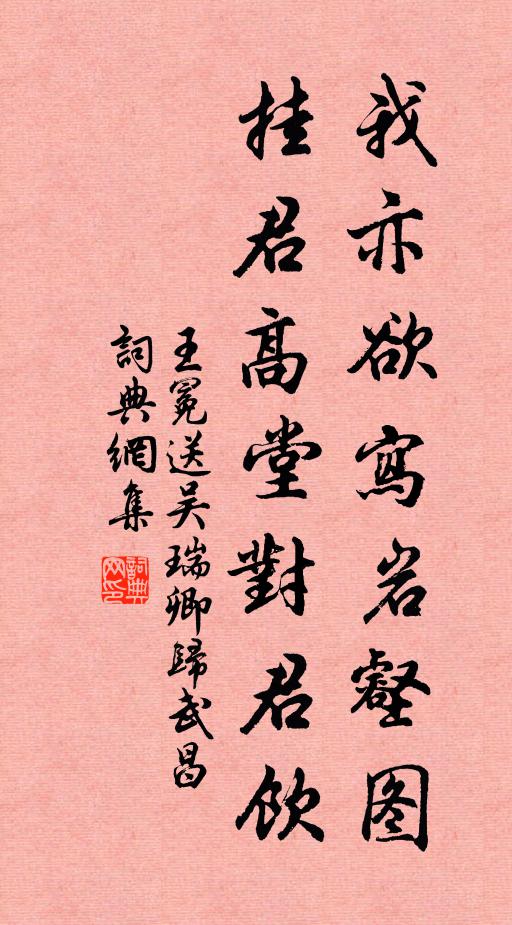 我亦欲寫岩壑图
挂君高堂對君飲
王冕送吴瑞卿歸武昌
詞典網集
詞典网印